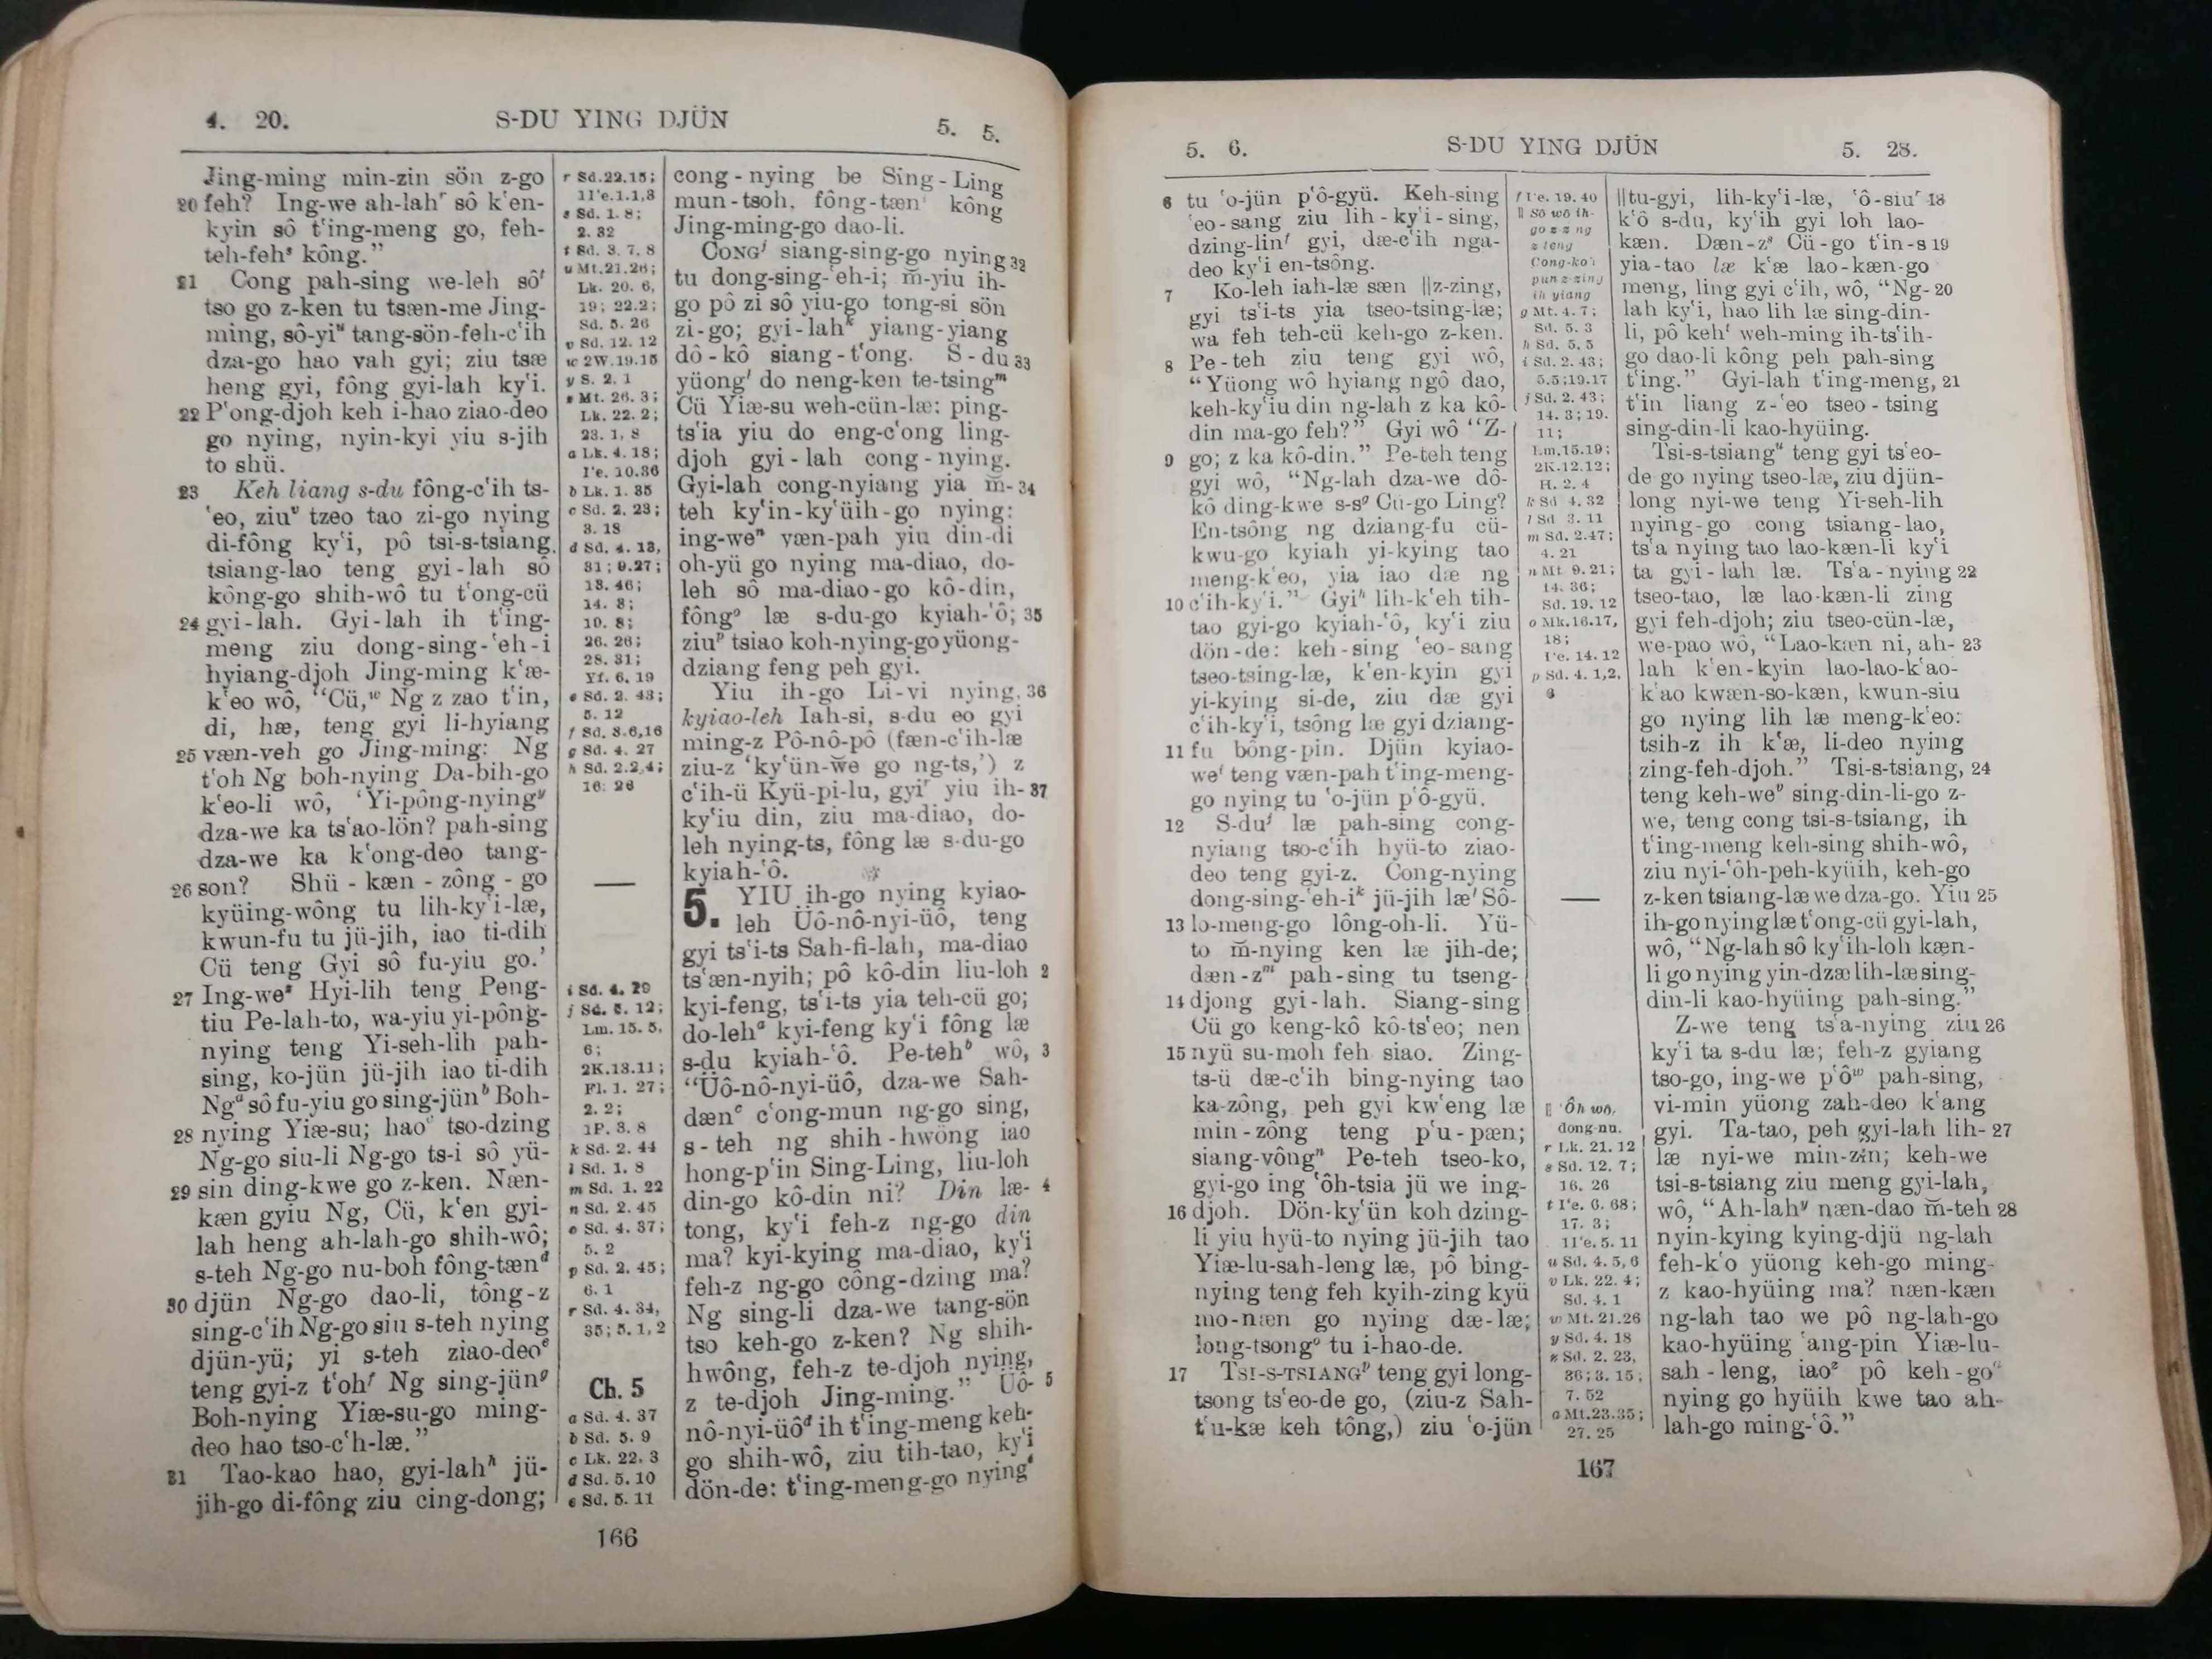 4. 20.
S-DU YING DJÜN
5. 5.
Jing-ming min-zin sön z-go
20 feh? Ing-we ah-lahʳ sô k'en-
kyin sô t'ing-meng go, feh-
teh-fehˢ kông."
21 Cong pah-sing we-leh sôᵗ
tso go z-ken tu tsæn-me Jing-
ming, sô-yiᵘ tang-sön-feh-c'ih
dza-go hao vah gyi; ziu tsæ
heng gyi, fông gyi-lah ky'i.
22 P'ong-djoh keh i-hao ziao-deo
go nying, nyin-kyi yiu s-jih
to shü.
23 Keh liang s-du fông-c'ih ts-
'eo, ziuᵛ tzeo tao zi-go nying
di-fông ky'i, pô tsi-s-tsiang,
tsiang-lao teng gyi-lah sô
kông-go shih-wô tu t'ong-cü
24 gyi-lah. Gyi-lah ih t'ing-
meng ziu dong-sing-'eh-i
hyiang-djoh Jing-ming k'æ-
k'eo wô, "Cü,ʷ Ng z zao t'in,
di, hæ, teng gyi li-hyiang
25 væn-veh go Jing-ming: Ng
t'oh Ng boh-nying Da-bih-go
k'eo-li wô, 'Yi-pông-nyingʸ
dza-we ka ts'ao-lön? pah-sing
dza-we ka k'ong-deo tang-
26 son? Shü-kæn-zông-go
kyüing-wông tu lih-ky'i-læ,
kwun-fu tu jü-jih, iao ti-dih
Cü teng Gyi sô fu-yiu go.'
27 Ing-weᶻ Hyi-lih teng Peng-
tiu Pe-lah-to, wa-yiu yi-pông-
nying teng Yi-seh-lih pah-
sing, ko-jün jü-jih iao ti-dih
Ngᵃ sô fu-yiu go sing-jünᵇ Boh-
28 nying Yiæ-su; haoᶜ tso-dzing
Ng-go siu-li Ng-go ts-i sô yü-
29 sin ding-kwe go z-ken. Næn-
kæn gyiu Ng, Cü, k'en gyi-
lah heng ah-lah-go shih-wô;
s-teh Ng-go nu-boh fông-tænᵈ
30 djün Ng-go dao-li, tông-z
sing-c'ih Ng-go siu s-teh nying
djün-yü; yi s-teh ziao-deoᵉ
teng gyi-z t'ohᶠ Ng sing-jünᵍ
Boh-nying Yiæ-su-go ming-
deo hao tso-c'h-læ."
31 Tao-kao hao, gyi-lahʰ jü-
jih-go di-fông ziu cing-dong;
r Sd.22.15;
11'e.1.1,3
s Sd. 1. 8;
2. 32
t Sd. 3. 7, 8
u Mt.21.26;
Lk. 20. 6,
19; 22.2;
Sd. 5. 26
v Sd. 12. 12
w 2W.19.15
y S. 2. 1
z Mt. 26. 3;
Lk. 22. 2;
23. 1, 8
a Lk. 4. 18;
I'e. 10.36
b Lk. 1. 35
c Sd. 2. 23;
3. 18
d Sd. 4. 13,
31; 9.27;
13. 46;
14. 3;
19. 8;
26. 26;
28. 31;
Yf. 6. 19
e Sd. 2. 43;
5. 12
f Sd. 3.6,16
g Sd. 4. 27
h Sd. 2.2,4;
16. 26
i Sd. 4. 29
j Sd. 5. 12;
Lm. 15. 5,
6;
2K.13.11;
Fl. 1. 27;
2. 2;
1P. 3. 8
k Sd. 2. 44
l Sd. 1. 8
m Sd. 1. 22
n Sd. 2. 45
o Sd. 4. 37;
5. 2
p Sd. 2. 45;
6. 1
r Sd. 4. 34,
35; 5. 1, 2
Ch. 5
a Sd. 4. 37
b Sd. 5. 9
c Lk. 22. 3
d Sd. 5. 10
e Sd. 5. 11
cong-nying be Sing-Ling
mun-tsoh, fông-tænⁱ kông
Jing-ming-go dao-li.
CONGʲ siang-sing-go nying 32
tu dong-sing-'eh-i; m̄-yiu ih-
go pô zi sô yiu-go tong-si sön
zi-go; gyi-lahᵏ yiang-yiang
dô-kô siang-t'ong. S-du 33
yüongˡ do neng-ken te-tsingᵐ
Cü Yiæ-su weh-cün-læ: ping-
ts'ia yiu do eng-c'ong ling-
djoh gyi-lah cong-nying.
Gyi-lah cong-nyiang yia m̄- 34
teh ky'in-ky'üih-go nying:
ing-weⁿ væn-pah yiu din-di
oh-yü go nying ma-diao, do-
leh sô ma-diao-go kô-din,
fôngᵒ læ s-du-go kyiah-'ô; 35
ziuᵖ tsiao koh-nying-go yüong-
dziang feng peh gyi.
Yiu ih-go Li-vi nying, 36
kyiao-leh Iah-si, s-du eo gyi
ming-z Pô-nô-pô (fæn-c'ih-læ
ziu-z 'ky'ün-we go ng-ts,') z
c'ih-ü Kyü-pi-lu, gyiʳ yiu ih- 37
ky'iu din, ziu ma-diao, do-
leh nying-ts, fông læ s-du-go
kyiah-'ô.
5. YIU ih-go nying kyiao-
leh Üô-nô-nyi-üô, teng
gyi ts'i-ts Sah-fi-lah, ma-diao
ts'æn-nyih; pô kô-din liu-loh 2
kyi-feng, ts'i-ts yia teh-cü go;
do-lehᵃ kyi-feng ky'i fông læ
s-du kyiah-'ô. Pe-tehᵇ wô, 3
"Üô-nô-nyi-üô, dza-we Sah-
dænᶜ c'ong-mun ng-go sing,
s-teh ng shih-hwông iao
hong-p'in Sing-Ling, liu-loh
din-go kô-din ni? Din læ- 4
tong, ky'i feh-z ng-go din
ma? kyi-kying ma-diao, ky'i
feh-z ng-go công-dzing ma?
Ng sing-li dza-we tang-sön
tso keh-go z-ken? Ng shih-
hwông, feh-z te-djoh nying,
z te-djoh Jing-ming." Üô- 5
nô-nyi-üôᵈ ih t'ing-meng keh-
go shih-wô, ziu tih-tao, ky'i
dön-de: t'ing-meng-go nyingᵉ
166
5. 6.
S-DU YING DJÜN
5. 28.
6 tu 'o-jün p'ô-gyü. Keh-sing
'eo-sang ziu lih-ky'i-sing,
dzing-linᶠ gyi, dæ-c'ih nga-
deo ky'i en-tsông.
7 Ko-leh iah-læ sæn ||z-zing,
gyi ts'i-ts yia tseo-tsing-læ;
wa feh teh-cü keh-go z-ken.
8 Pe-teh ziu teng gyi wô,
"Yüong wô hyiang ngô dao,
keh-ky'iu din ng-lah z ka kô-
din ma-go feh?" Gyi wô "Z-
9 go; z ka kô-din." Pe-teh teng
gyi wô, "Ng-lah dza-we dô-
kô ding-kwe s-sᵍ Cü-go Ling?
En-tsông ng dziang-fu cü-
kwu-go kyiah yi-kying tao
meng-k'eo, yia iao dæ ng
10 c'ih-ky'i." Gyiʰ lih-k'eh tih-
tao gyi-go kyiah-'ô, ky'i ziu
dön-de: keh-sing 'eo-sang
tseo-tsing-læ, k'en-kyin gyi
yi-kying si-de, ziu dæ gyi
c'ih-ky'i, tsông læ gyi dziang-
11 fu bông-pin. Djün kyiao-
weⁱ teng væn-pah t'ing-meng-
go nying tu 'o-jün p'ô-gyü.
12 S-duʲ læ pah-sing cong-
nyiang tso-c'ih hyü-to ziao-
deo teng gyi-z. Cong-nying
dong-sing-'eh-iᵏ jü-jih læˡ Sô-
13 lo-meng-go lông-oh-li. Yü-
to m̄-nying ken læ jih-de;
dæn-zᵐ pah-sing tu tseng-
14 djong gyi-lah. Siang-sing
Cü go keng-kô kô-ts'eo; nen
15 nyü su-moh feh siao. Zing-
ts-ü dæ-c'ih bing-nying tao
ka-zông, peh gyi kw'eng læ
min-zông teng p'u-pæn;
siang-vôngⁿ Pe-teh tseo-ko,
gyi-go ing 'ôh-tsia jü we ing-
16 djoh. Dön-ky'ün koh dzing-
li yiu hyü-to nying jü-jih tao
Yiæ-lu-sah-leng læ, pô bing-
nying teng feh kyih-zing kyü
mo-næn go nying dæ-læ;
long-tsongᵒ tu i-hao-de.
17 TSI-S-TSIANGᵖ teng gyi long-
tsong ts'eo-de go, (ziu-z Sah-
t'u-kæ keh tông,) ziu 'o-jün
f I'e. 19. 40
|| So wô ih-
go z z ng
z teng
Cong-ko'i
pun z-zing
ih yiang
g Mt. 4. 7;
Sd. 5. 3
h Sd. 5. 5
i Sd. 2. 43;
5.5;19.17
j Sd. 2. 43;
14. 3; 19.
11;
Lm.15.19;
2K.12.12;
H. 2. 4
k Sd 4. 32
l Sd 3. 11
m Sd. 2.47;
4. 21
n Mt 9. 21;
14. 36;
Sd. 19. 12
o Mk.16.17,
18;
I'e. 14. 12
p Sd. 4. 1,2,
6
|| 'Ôh wô,
dong-nu.
r Lk. 21. 12
s Sd. 12. 7;
16. 26
t I'e. 6. 68;
17. 3;
11'e. 5. 11
u Sd. 4. 5, 6
v Lk. 22. 4;
Sd. 4. 1
w Mt. 21.26
y Sd. 4. 18
z Sd. 2. 23,
36; 3. 15;
7. 52
a Mt.23.35;
27. 25
||tu-gyi, lih-ky'i-læ, 'ô-siuʳ 18
k'ô s-du, ky'ih gyi loh lao-
kæn. Dæn-zˢ Cü-go t'in-s 19
yia-tao læ k'æ lao-kæn-go
meng, ling gyi c'ih, wô, "Ng- 20
lah ky'i, hao lih læ sing-din-
li, pô kehᵗ weh-ming ih-ts'ih-
go dao-li kông peh pah-sing
t'ing." Gyi-lah t'ing-meng, 21
t'in liang z-'eo tseo-tsing
sing-din-li kao-hyüing.
Tsi-s-tsiangᵘ teng gyi ts'eo-
de go nying tseo-læ, ziu djün-
long nyi-we teng Yi-seh-lih
nying-go cong tsiang-lao,
ts'a nying tao lao-kæn-li ky'i
ta gyi-lah læ. Ts'a-nying 22
tseo-tao, læ lao-kæn-li zing
gyi feh-djoh; ziu tseo-cün-læ,
we-pao wô, "Lao-kæn ni, ah- 23
lah k'en-kyin lao-lao-k'ao-
k'ao kwæn-so-kæn, kwun-siu
go nying lih læ meng-k'eo:
tsih-z ih k'æ, li-deo nying
zing-feh-djoh." Tsi-s-tsiang, 24
teng keh-weᵛ sing-din-li-go z-
we, teng cong tsi-s-tsiang, ih
t'ing-meng keh-sing shih-wô,
ziu nyi-'ôh-peh-kyüih, keh-go
z-ken tsiang-læ we dza-go. Yiu 25
ih-go nying læ t'ong-cü gyi-lah,
wô, "Ng-lah sô ky'ih-loh kæn-
li go nying yin-dzæ lih-læ sing-
din-li kao-hyüing pah-sing."
Z-we teng ts'a-nying ziu 26
ky'i ta s-du læ; feh-z gyiang
tso-go, ing-we p'ôʷ pah-sing,
vi-min yüong zah-deo k'ang
gyi. Ta-tao, peh gyi-lah lih- 27
læ nyi-we min-zin; keh-we
tsi-s-tsiang ziu meng gyi-lah,
wô, "Ah-lahʸ næn-dao m̄-teh 28
nyin-kying kying-djü ng-lah
feh-k'o yüong keh-go ming-
z kao-hyüing ma? næn-kæn
ng-lah tao we pô ng-lah-go
kao-hyüing 'ang-pin Yiæ-lu-
sah-leng, iaoᶻ pô keh-goᵃ
nying go hyüih kwe tao ah-
lah-go ming-'ô."
167